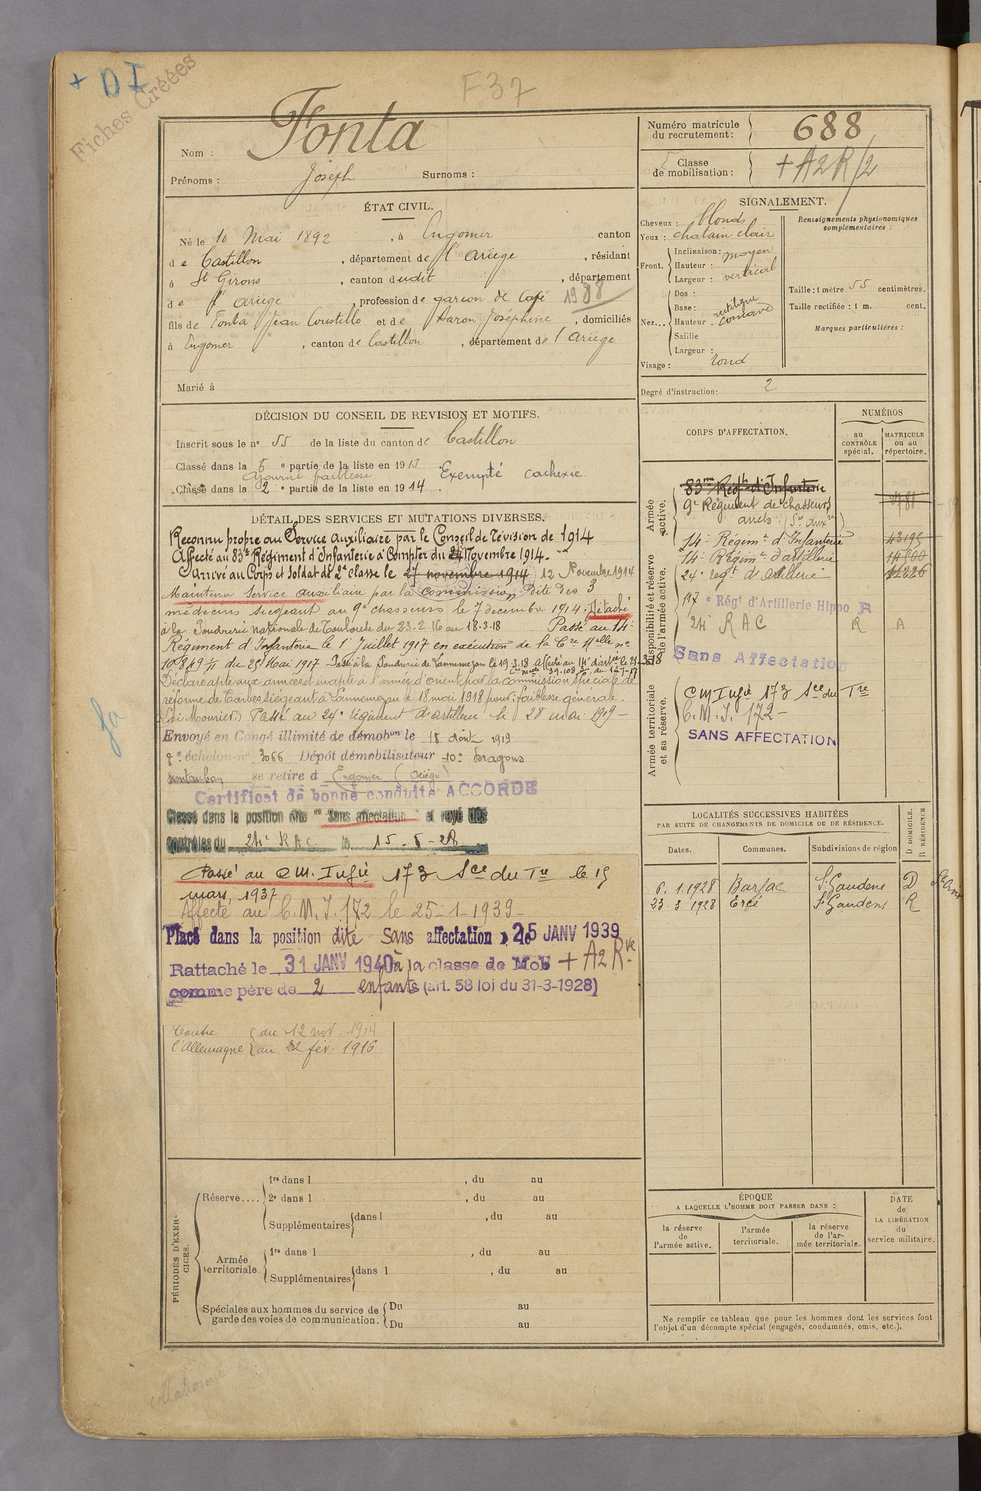 + DI
Fiches Créées
F37
Nom : Fonta
Prénoms : Joseph Surnoms :
Numéro matricule du recrutement: 688
Classe de mobilisation: + A2R/2
ÉTAT CIVIL.
Né le 10 Mai 1892, à Engomer canton
de Castillon, département de l'Ariège, résidant
à St Girons, canton dudit, département
de l'Ariège, profession de garçon de Café 1988
fils de Fonta Jean Coustillo et de Haron Joséphine, domiciliés
à Engomer, canton de Castillon, département de l'Ariège
Marié à
SIGNALEMENT.
Cheveux : blonds
Yeux : chatain clair
Front. Inclinaison: moyen
Hauteur :
Largeur : vertical
Nez... Dos : rectiligne
Base : concave
Hauteur :
Saillie
Largeur :
Visage : rond
Renseignements physionomiques complémentaires :
Taille : 1 mètre 55 centimètres.
Taille rectifiée : 1 m. cent.
Marques particulières :
Degré d'instruction: 2
DÉCISION DU CONSEIL DE REVISION ET MOTIFS.
Inscrit sous le n° 55 de la liste du canton de Castillon
Classé dans la 5e partie de la liste en 1913
Ajourné faiblesse Exempté cachexie
Classé dans la 2e partie de la liste en 1914.
DÉTAIL DES SERVICES ET MUTATIONS DIVERSES.
Reconnu propre au Service auxiliaire par le Conseil de révision de 1914
Affecté au 83e Régiment d'Infanterie à compter du 24 Novembre 1914.
Arrivé au Corps et Soldat de 2e classe le 27 novembre 1914 12 Novembre 1914
Maintenu Service auxiliaire par la Commission dite des 3
médecins siégeant au 9e chasseurs le 7 décembre 1914. Détaché
à la Poudrerie nationale de Toulouse du 23-2-16 au 18-3-18 Passé au 14e
Régiment d'Infanterie le 1er Juillet 1917 en exécution de la Cre Mlle n°
10849 du 25 Mai 1917 - Passé à la Poudrerie de Lannemezan le 19.3.18 affecté au 14e d'art. le 21-3-18
Déclaré apte aux armées et inapte à l'armée d'orient par la commission spéciale de
réforme de Tarbes siégeant à Lannemezan le 18 mai 1918 pour : faiblesse générale.
(Loi Mourier) Passé au 24e régiment d'artillerie le 28 mai 1919 -
Envoyé en Congé illimité de démobon le 18 août 1919
8e échelon n° 3066 Dépôt démobilisateur 10e Dragons
Montauban se retire à Engomer (Ariège)
Certificat de bonne conduite ACCORDÉ
Classé dans la position dite "Sans affectation" et rayé des
contrôles du 24e RAC le 15-5-28
Passé au C.M. Infie 173 Sce du Tre le 15
mars 1937
Affecté au C.M.I. 172 le 25-1-1939-
Placé dans la position dite Sans affectation le 25 JANV 1939
Rattaché le 31 JANV 1940 à la classe de Mob + A2 Rve
comme père de 2 enfants (art. 58 loi du 31-3-1928)
Contre l'Allemagne { du 12 nov. 1914
au 22 fév. 1916
CORPS D'AFFECTATION.
NUMÉROS
au CONTRÔLE spécial.
MATRICULE ou au répertoire.
Armée active.
83me Regt d'Infanterie
9e Régiment de chasseurs
14e Régimt d'Infanterie
14e Régimt d'artillerie
24e regt d'Artillerie
Disponibilité et réserve de l'armée active.
117e Régt d'Artillerie Hippo R A
24e RAC R A
Sans Affectation
Armée territoriale et sa réserve.
CM Infie 173 Sce du Tre
C.M.I. 172-
SANS AFFECTATION
LOCALITÉS SUCCESSIVES HABITÉES
PAR SUITE DE CHANGEMENTS DE DOMICILE OU DE RÉSIDENCE.
Dates. Communes. Subdivisions de région D DOMICILE. R RÉSIDENCE.
6.1.1928 Barjac St Gaudens D
23-3-1928 Ercé St Gaudens R
ÉPOQUE
A LAQUELLE L'HOMME DOIT PASSER DANS :
la réserve de l'armée active.
l'armée territoriale.
la réserve de l'armée territoriale.
DATE de LA LIBÉRATION du service militaire.
Ne remplir ce tableau que pour les hommes dont les services font
l'objet d'un décompte spécial (engagés, condamnés, omis, etc.).
PÉRIODES D'EXERCICES.
Réserve.... 1re dans l , du au
2e dans l , du au
Supplémentaires dans l , du au
Armée territoriale. 1re dans l , du au
Supplémentaires dans l , du au
Spéciales aux hommes du service de garde des voies de communication. Du au
Du au